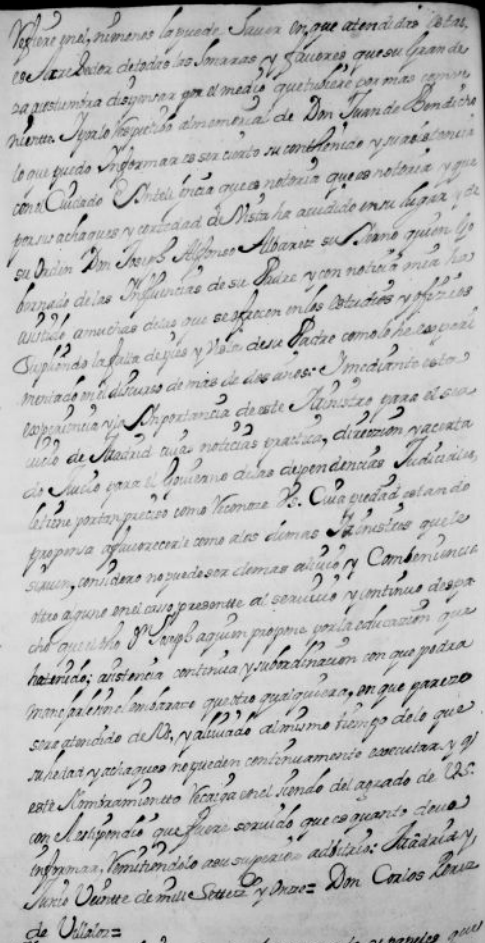 Refiere en el, ní menos la puede haver en que atendidas estas,
es Acrehedor de todas las honrras y favores que su Grande
za acostumbra dispensar por el medio que tubiere por mas combe
niente. Y por lo respectibo al memorial de Don Juan de Bendicho
lo que puedo Informar es ser cierto su conthenido y su asistencia
con el Cuidado e Intelixencia que es notoria que es notoria y que
por sus achaques y cortedad de Vista ha acudido en su lugar y de
su orden Don Joseph Alfonso Albarez su Yerno quien
de las Influencias de su Padre y con noticia mia ha
asistido a muchas delas que se ofrecen en los estudios y oficios
Supliendo la falta de pies y Vista de su Padre como lo he experi
mentado en el discurso de mas de dos años: Y mediante esta
experiencia y la Importancia de este Ministro para el ser
vicio de Madrid cuias noticias practica, dirección y acerta
do Juicio para el Govierno de las dependencias Judiciales,
le tiene por tan preciso como reconoze Vs. Cuia piedad estando
propensa a favorecerle como a los demas Ministros que le
sirven, considero no puede ser de mas alivio y Combeniencia
otro alguno en el caso presentte al servicio y continuo despa
cho que el dho Dn Joseph a quien propone por la educazion que
ha tenido; asistencia continua y subordinazion con que podra
manejarle sin el embarazo que otro qualquiera, en que parezé
sera atendido de Vs, y aliviado al mismo tiempo de lo que
su hedad y achaques no pueden continuamente executar y qe
este Nombramientto recaiga en el siendo del agrado de Vs.
con el estipendio que fuere servido que es quanto devo
informar, remitiendolo a su superior adbitrio: Madrid y
Junio Veintte de mill Settezs y Onze= Don Carlos Perez
de Villalor=